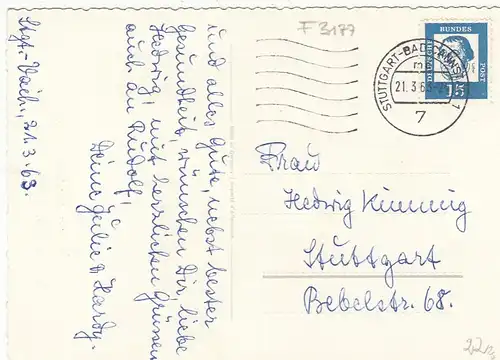 Stgt.-Vaih., 21.3.63.
und alles Gute, nebst bester
Gesundheit, wünschen Dir, liebe
Hedwig, mit herzlichen Grüssen
auch an Rudolf,
Deine & Hardy.
F 3177
DEUTSCHE BUNDESPOST
15
STUTTGART-BAD CANNSTATT 1
21.3.63
7
Frau
Hedwig Kimmig
Stuttgart
Bebelstr. 68.